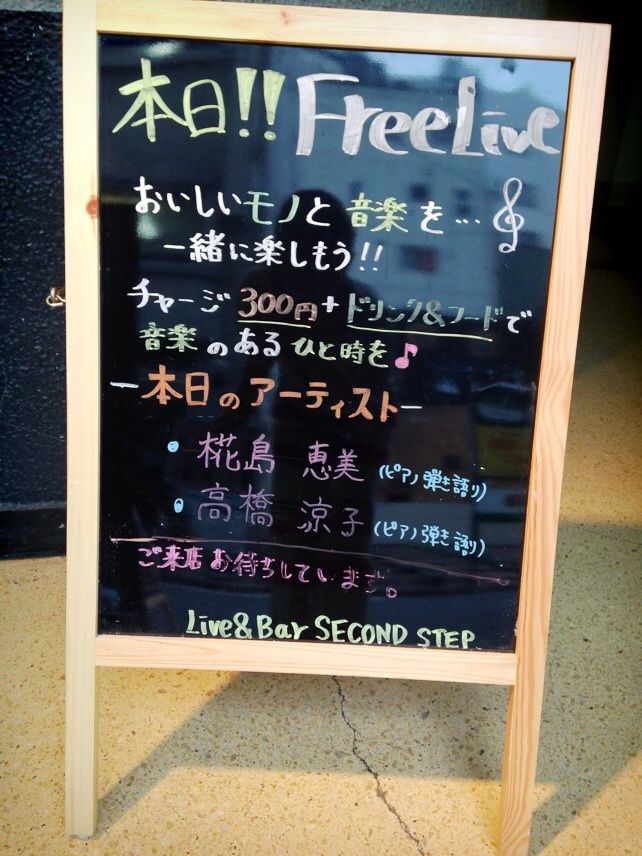 本日!! FreeLive
おいしいモノと音楽を…
一緒に楽しもう!!
チャージ300円+ドリンク&フードで
音楽のあるひと時を♪
ー本日のアーティストー
・椛島 恵美(ピアノ弾き語り)
・高橋 涼子(ピアノ弾き語り)
ご来店お待ちしています。
Live&Bar SECOND STEP